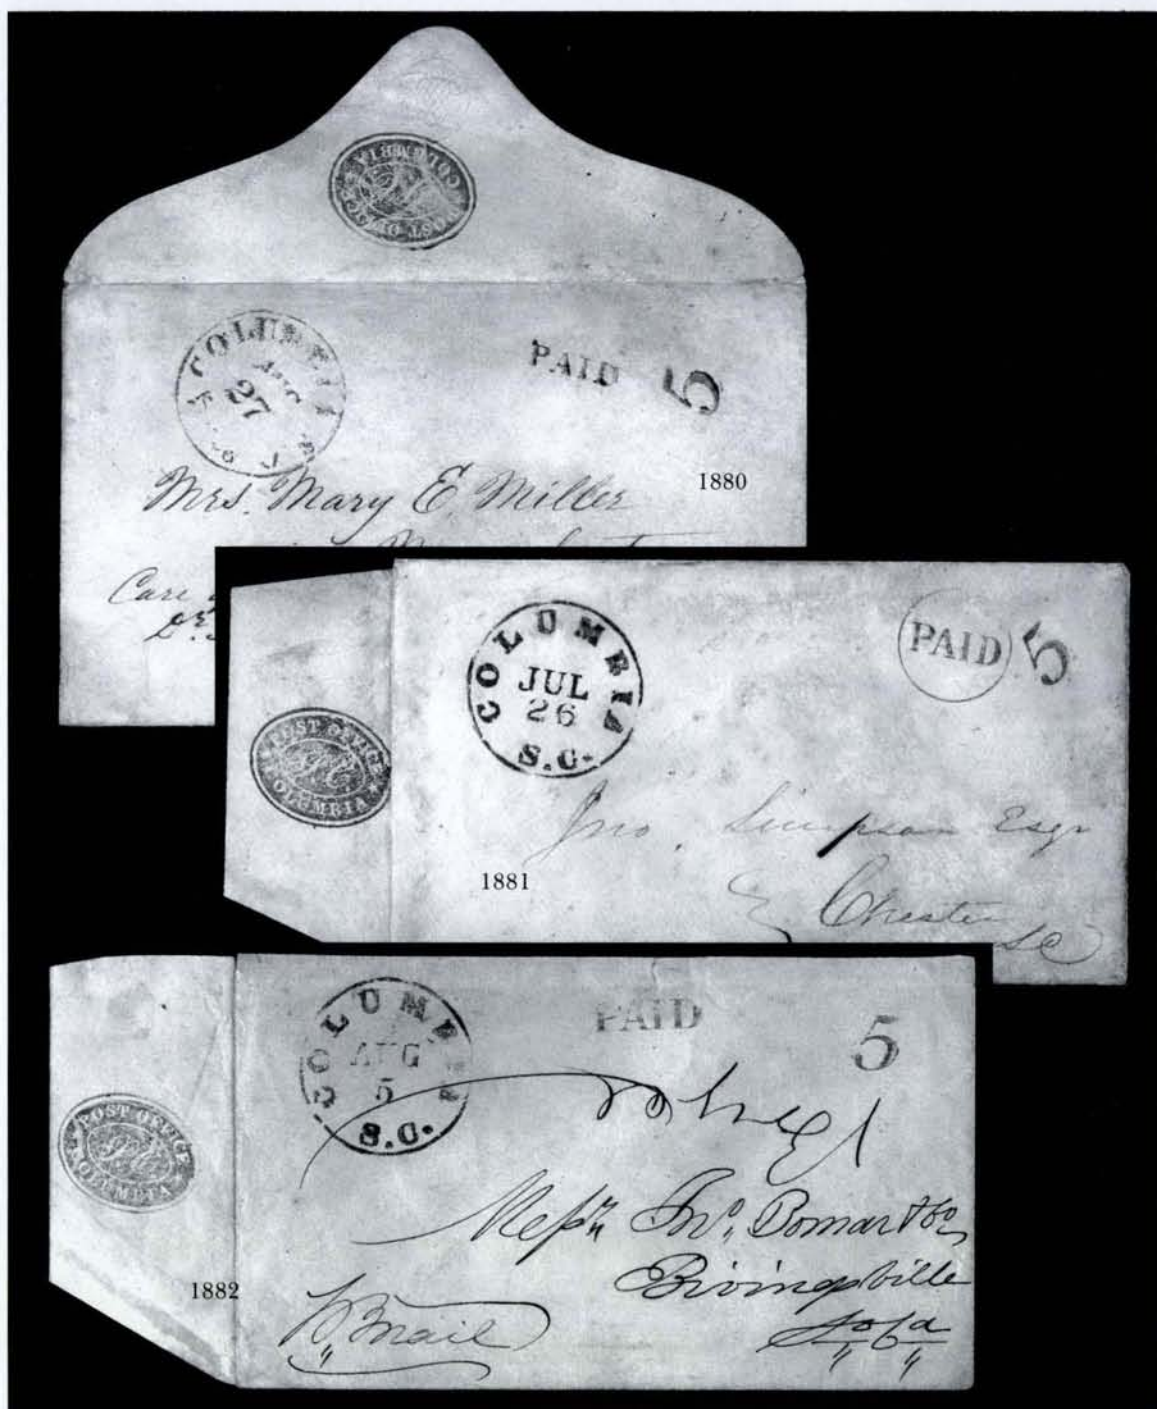 POST OFFICE
COLUMBIA
COLUMBIA
AUG
27
PAID 5
1880
Mrs. Mary E. Miller
Care
COLUMBIA
JUL
26
S.C.
PAID 5
POST OFFICE
COLUMBIA
Jno. Simpson Esqr
1881
Chester
SC
COLUMBIA
AUG
5
S.C.
PAID
5
POST OFFICE
COLUMBIA
Messrs Jno. Bomar & Co
Bivingsville
1882
So Ca
Mail